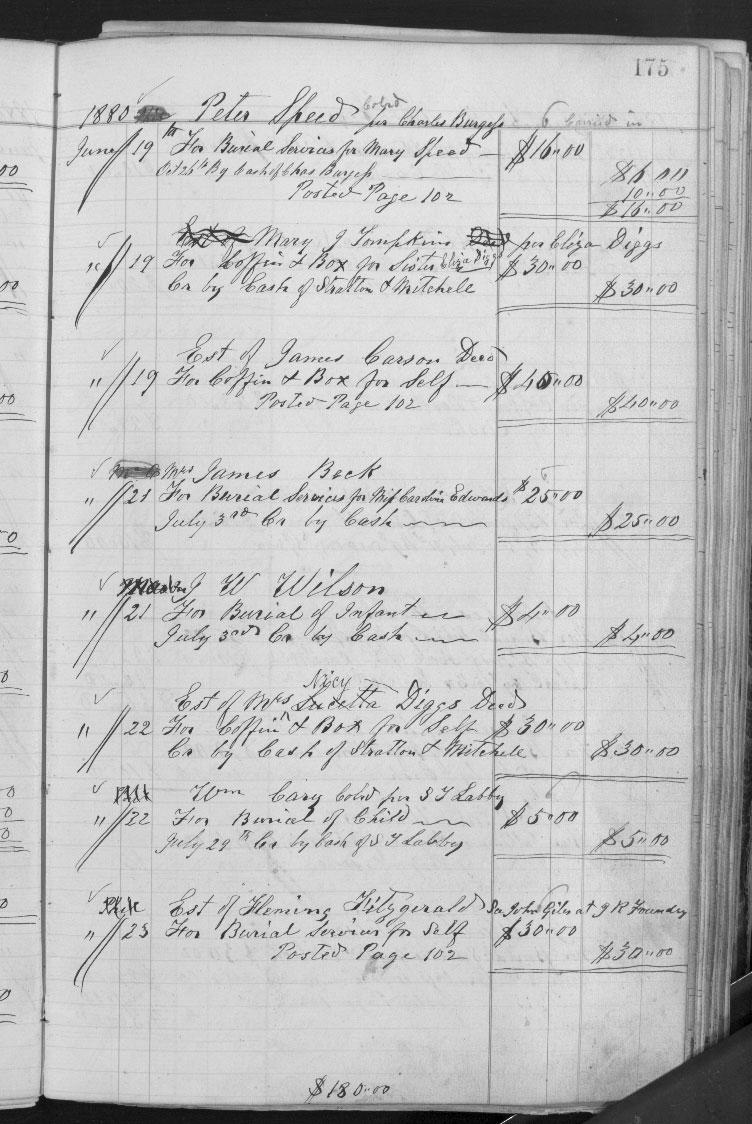 175
1880 Peter Speed Cold per Charles Burgess 6 Carried in
June 19th For Burial Services for Mary Speed — $16"00
Oct 26th By Cash of Chas Burgess $6 00
10"00
Posted Page 102 $16"00
Est of Mary J Tompkins Decd per Eliza Diggs
" 19 For Coffin & Box for Sister Eliza Diggs $30"00
Cr by Cash of Stratton & Mitchell $30"00
Est of James Carson Decd
" 19 For Coffin & Box for Self — $40"00
Posted Page 102 $40"00
Mrs James Beck
" 21 For Burial Services for Miss Caroline Edwards $25"00
July 3rd Cr by Cash $25"00
J W Wilson
" 21 For Burial of Infant $4"00
July 3rd Cr by Cash $4"00
Nicy
Est of Mrs Lucetta Diggs Decd
" 22 For Coffin & Box for Self $30"00
Cr by Cash of Stratton & Mitchell $30"00
Wm Cary Cold per S T Labby
" 22 For Burial of Child $5"00
July 29th Cr by Cash of S T Labby $5"00
Est of Fleming Fitzgerald See John Giles at J R Foundry
" 23 For Burial Services for Self $30"00
Posted Page 102 $30"00
$180"00